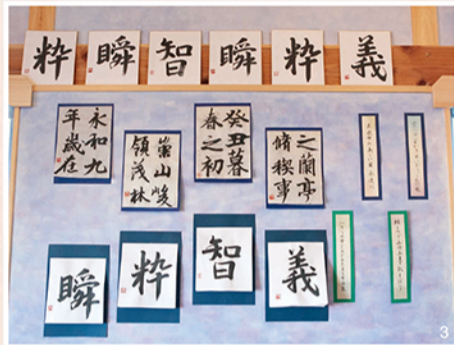 粋
瞬
智
瞬
粋
義
永和九
年歳在
崇山峻
領茂林
癸丑暮
春之初
之蘭亭
脩稧事
瞬
粋
智
義
3